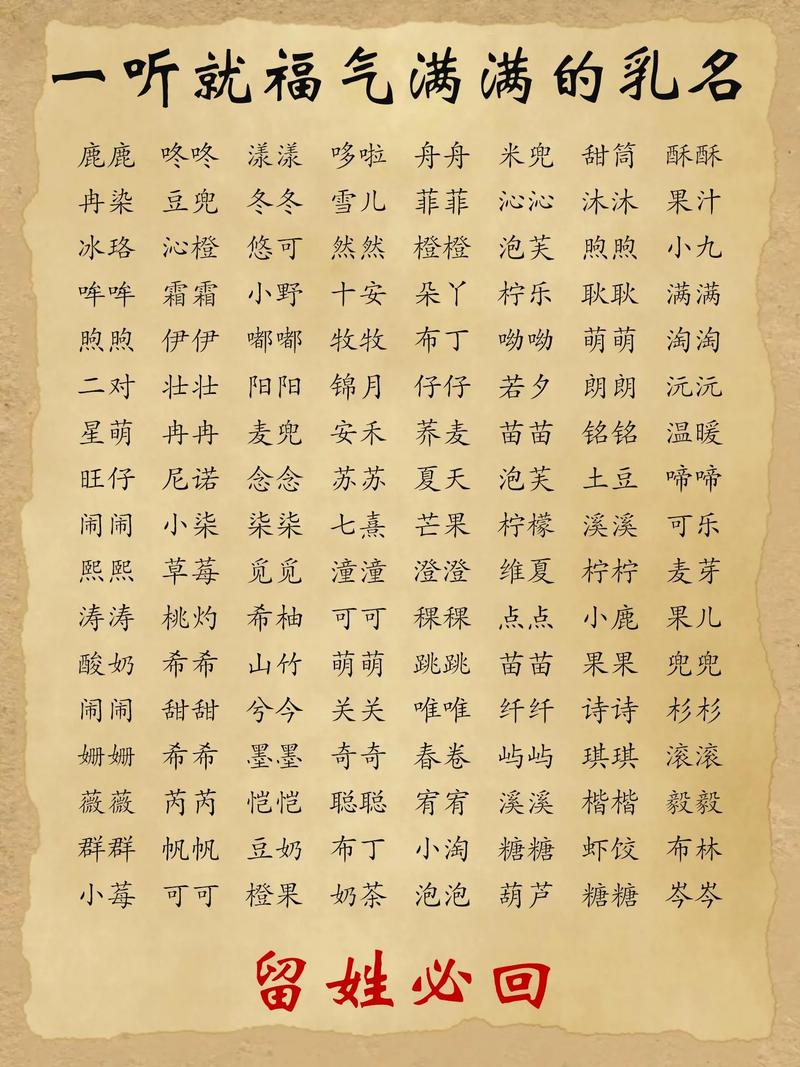 一听就福气满满的乳名
鹿鹿 咚咚 漾漾 哆啦 舟舟 米兜 甜筒 酥酥
冉染 豆兜 冬冬 雪儿 菲菲 沁沁 沐沐 果汁
冰珞 沁橙 悠可 然然 橙橙 泡芙 煦煦 小九
哞哞 霜霜 小野 十安 朵丫 柠乐 耿耿 满满
煦煦 伊伊 嘟嘟 牧牧 布丁 呦呦 萌萌 淘淘
二对 壮壮 阳阳 锦月 仔仔 若夕 朗朗 沅沅
星萌 冉冉 麦兜 安禾 荞麦 苗苗 铭铭 温暖
旺仔 尼诺 念念 苏苏 夏天 泡芙 土豆 啼啼
闹闹 小柒 柒柒 七熹 芒果 柠檬 溪溪 可乐
熙熙 草莓 觅觅 潼潼 澄澄 维夏 柠柠 麦芽
涛涛 桃灼 希柚 可可 稞稞 点点 小鹿 果儿
酸奶 希希 山竹 萌萌 跳跳 苗苗 果果 兜兜
闹闹 甜甜 兮今 关关 唯唯 纤纤 诗诗 杉杉
姗姗 希希 墨墨 奇奇 春卷 屿屿 琪琪 滚滚
薇薇 芮芮 恺恺 聪聪 宥宥 溪溪 楷楷 毅毅
群群 帆帆 豆奶 布丁 小淘 糖糖 虾饺 布林
小莓 可可 橙果 奶茶 泡泡 葫芦 糖糖 岑岑
留姓必回